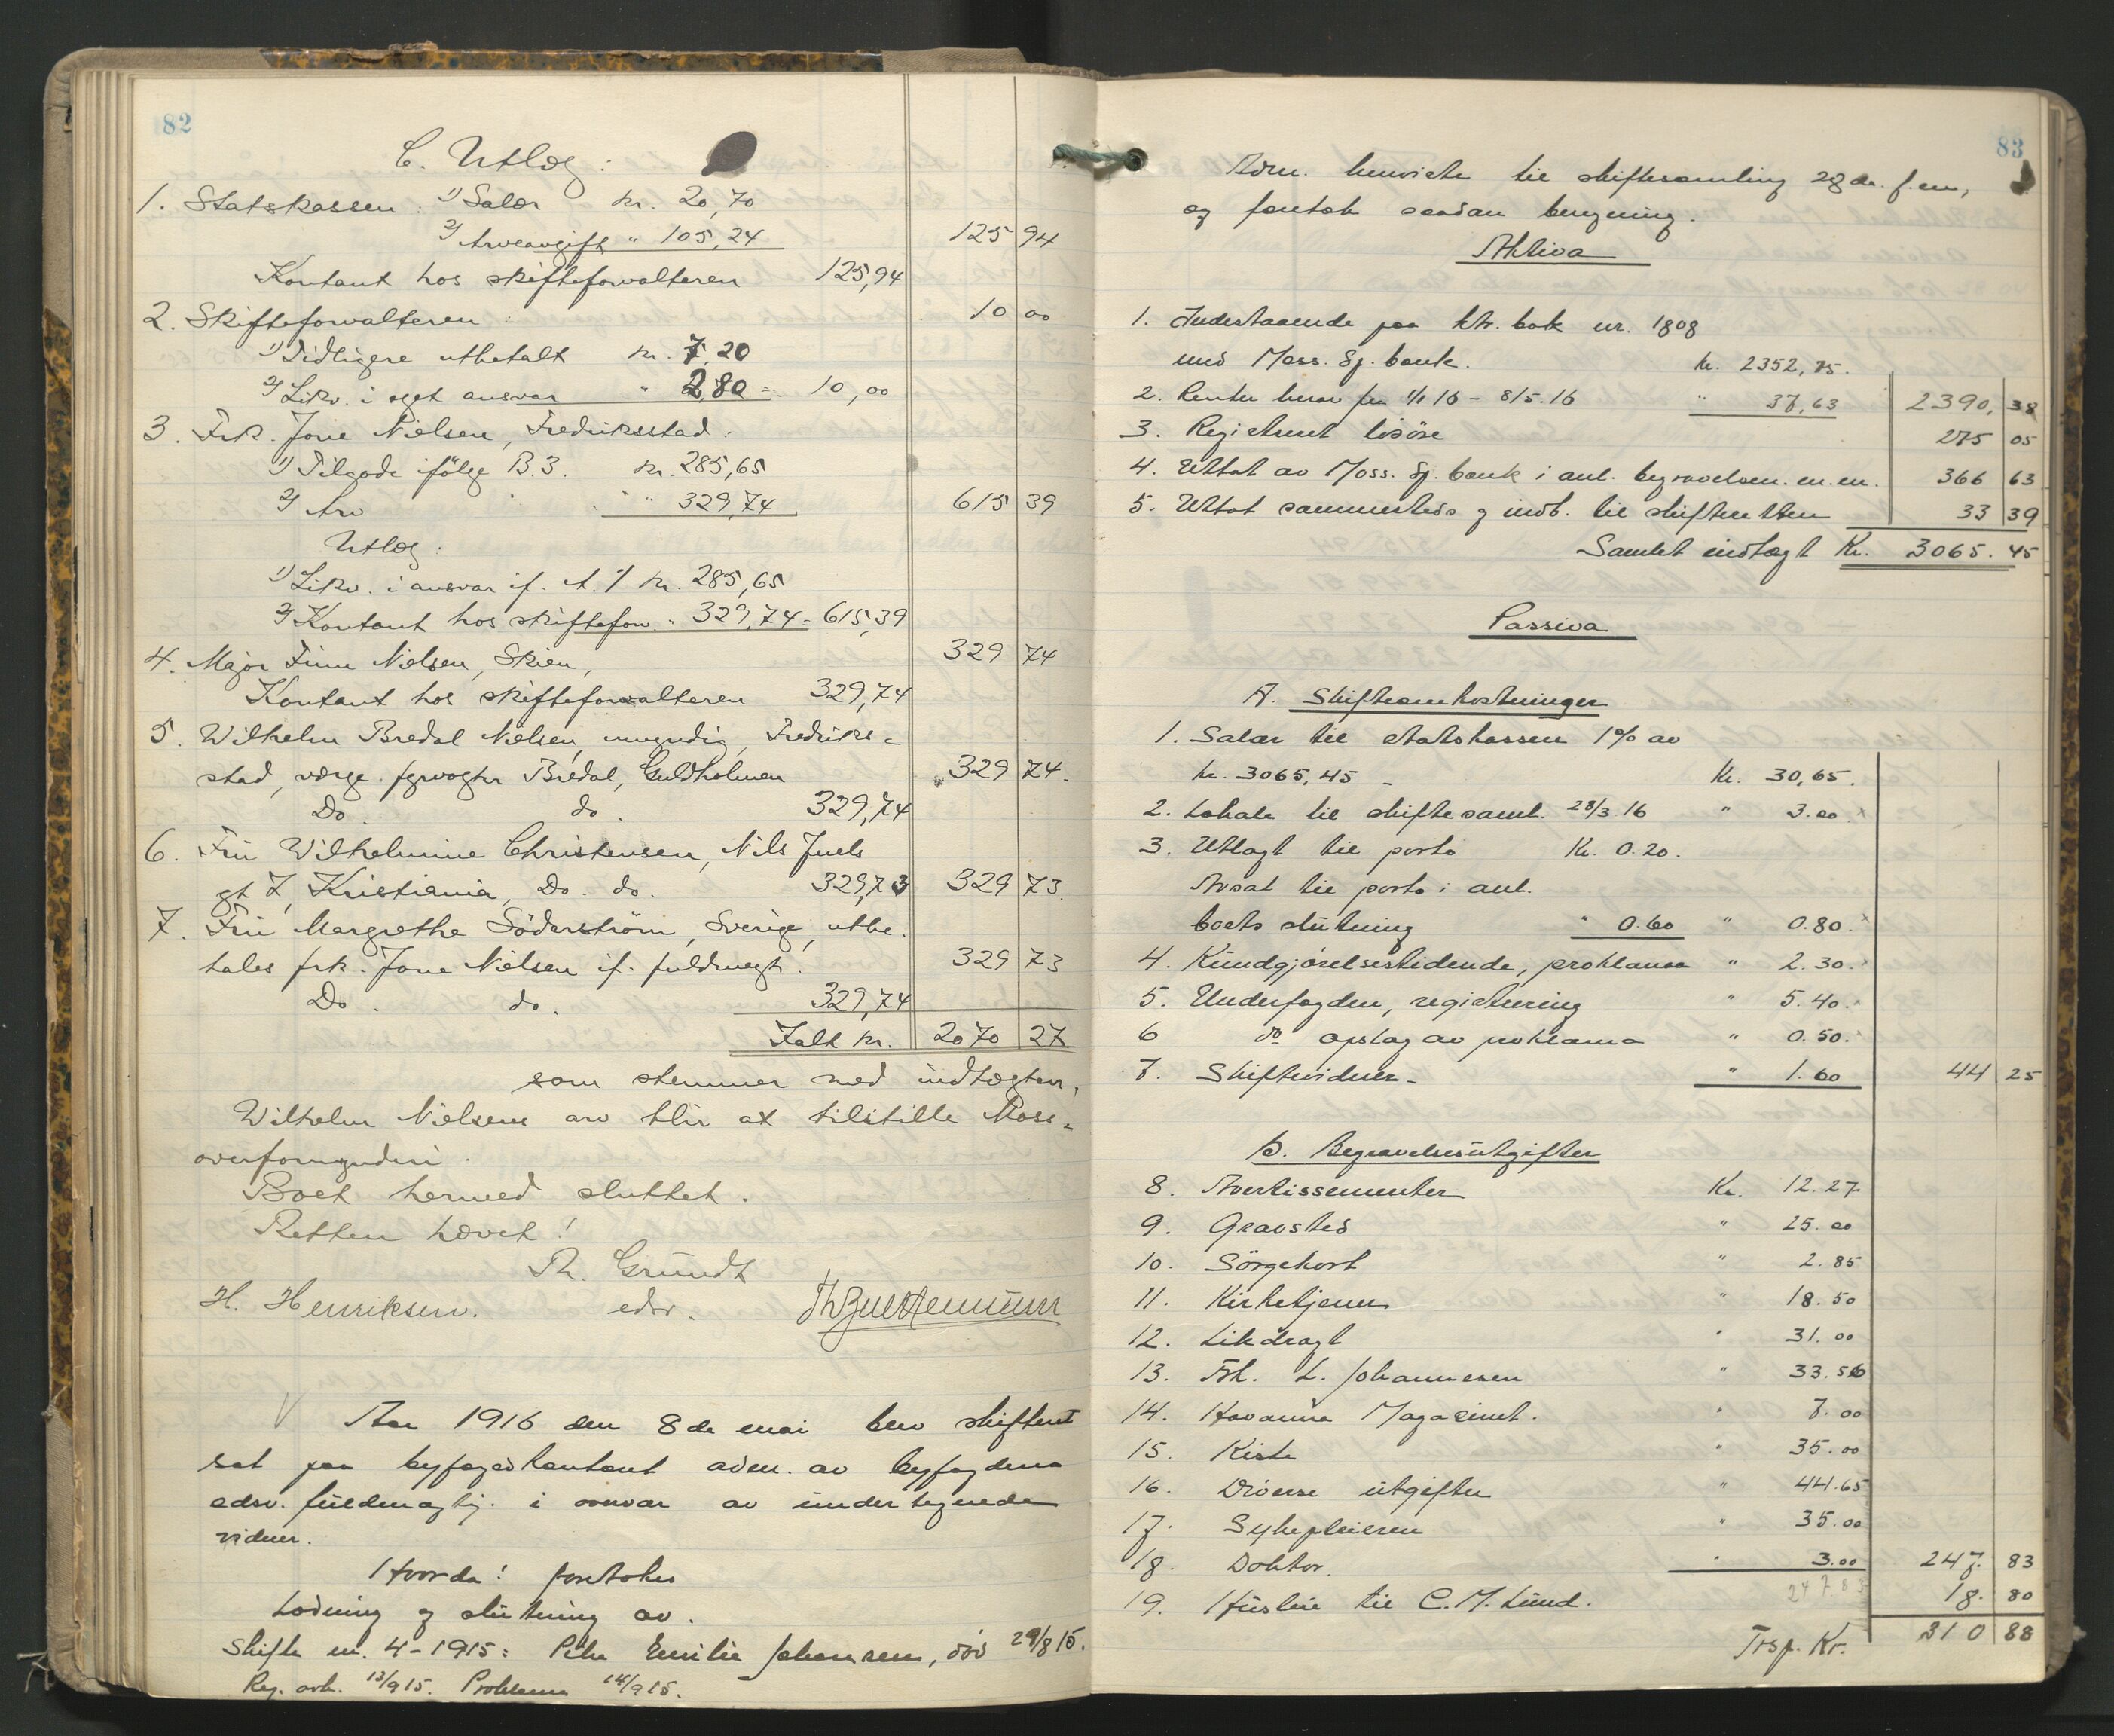 82
C. Utlæg:
1. Statskassen: 1) Salær kr. 20,70
2) Arveavgift " 105,24 125 94
Kontant hos skifteforvalteren 125,94
2. Skifteforvalteren: 10 00
1) Tidligere utbetalt kr. 7,20
2) Likv. i eget ansvar " 2,80 = 10,00
3. Frk. Jove Nielsen, Fredriksstad:
1) Tilgode ifölge B.3. kr. 285,65
2) Arv " " 329,74 615 39
Utlæg:
1) Likv. i ansvar if. A.1 kr. 285,65
2) Kontant hos skifteforv. " 329,74 = 615,39
4. Major Finn Nielsen, Skien, 329 74
Kontant hos skifteforvalteren 329,74
5. Wilhelm Bredal Nielsen, umyndig, Fredriks=
stad, værge fyrvogter Bredal, Guldholmen 329 74.
Do. do. 329,74
6. Fru Wilhelmine Christensen, Nils Juels
gt 7, Kristiania, Do. do. 329,73 329 73.
7. Fru Margrethe Söderström, Sverige, utbe-
tales frk. Jove Nielsen if. fuldmagt. 329 73
Do. do. 329,74
Ialt kr. 2070 27
som stemmer med indtægten.
Wilhelm Nielsens arv blir at tilstille Moss=
overformynderi.
Boet hermed sluttet.
Retten hævet!
Th. Grundt
H. Henriksen. edsv.
Aar 1916 den 8de mai blev skifteret
sat paa byfogedkontoret adm. av byfogdens
edsv. fuldmægtig i overvær av undertegnede
vidner.
Hvorda! foretokes
Lodning og slutning av.
Skifte nr. 4-1915: Pike Emilie Johansen, död 29/8 15.
Reg. avh. 13/9 15. Proklama 14/9 15.
83
Adm. henviste til skiftesamling 28de f.m.,
og foretok saadan beregning.
Aktiva
1. Indestaaende paa ktr. bok nr. 1808
med Moss. Sp. bank. Kr. 2352,75.
2. Renter herav fra 1/1 16 - 8/5. 16 " 37,63 2390, 38
3. Registreret lösöre 275 05
4. Uttat av Moss. Sp. bank i anl. begravelsen m.m. 366 63
5. Uttat sammesteds og indb. til skifteretten 33 39
Samlet indtægt Kr. 3065.45
Passiva
A. Skifteomkostninger
1. Salær til statskassen 1% av
kr. 3065,45 - Kr. 30,65.
2. Lokale til skiftesaml. 28/3 16 " 3.00
3. Utlagt til porto Kr. 0.20.
Avsat til porto i anl.
boets slutning " 0.60 " 0.80.
4. Kundgjörelsestidende, proklama " 2.30.
5. Underfogden, registrering " 5.40.
6 do opslag av proklama " 0.50.
7. Skiftevidner - " 1.60 44 25
B. Begravelsesutgifter
8. Avertissementer Kr. 12.27
9. Gravsted " 25.00
10. Sörgekort " 2.85
11. Kirketjener " 18.50
12. Likdragt " 31.00
13. Frk. L. Johannesen " 33.56
14. Havanna Magasinet. " 7.00
15. Kiste " 35.00
16. Diverse utgifter " 44.65
17. Sykepleiersen " 35.00
18. Doktor. " 3.00 247. 83
247 83
19. Husleie til C. M. Lund. 18. 80
Trsp. Kr. 310 88